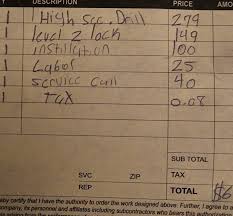 Y DESCRIPTION PRICE AMO
1 High Sec. Drill 279
1 level 2 lock 149
1 instillation 100
1 Labor 25
1 Service Call 40
1 TAX 0.08
SUB TOTAL
SVC ZIP TAX
REP TOTAL $6
eby certify that I have the authority to order the work designed above. Further, I agree to a
ompany, its personnel and affiliates including subcontractors who bears this authorization